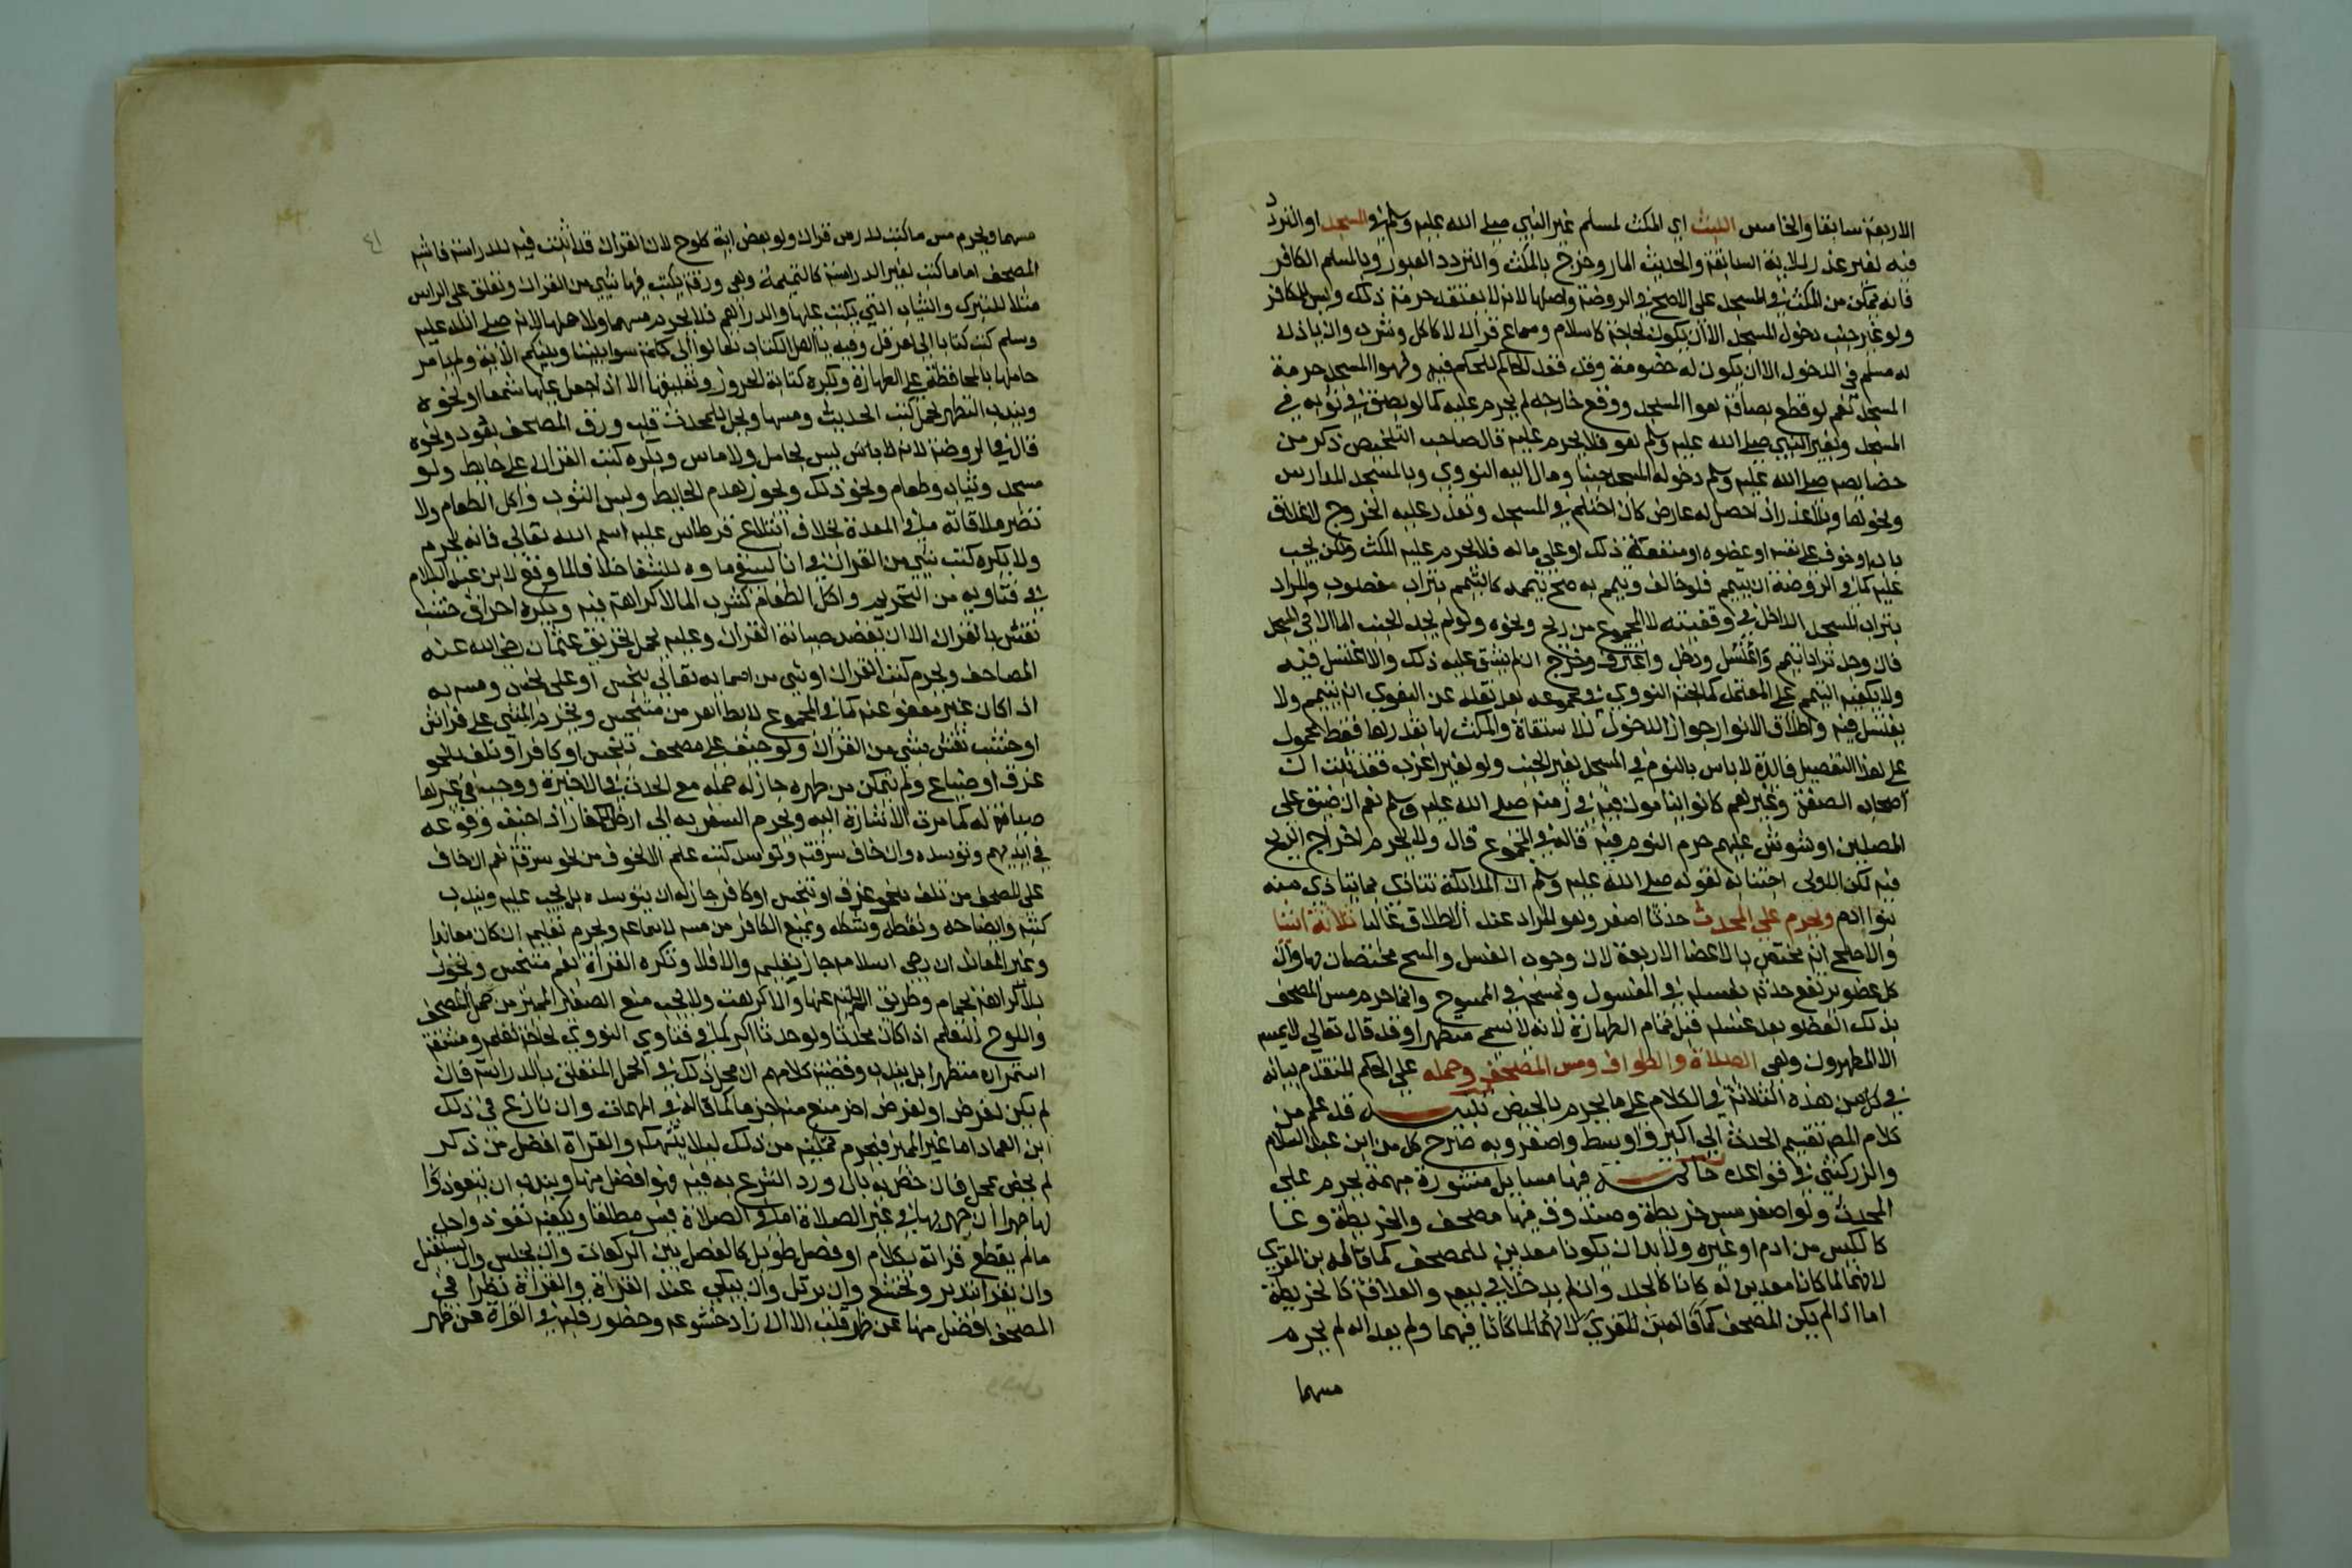 الاربعة سابقا والخامس اللبث اي المكث لمسلم غير النبي صلي الله عليه وسلم في المسجد او التردد
فيه لغير عذر للاية السابقة والحديث المار وخرج بالمكث والتردد العبور وبالمسلم الكافر
فانه يمكن من المكث في المسجد على الاصح في الروضة واصلها لانه لا يعتقد حرمة ذلك وليس للكافر
ولو غير جنب دخول المسجد الا ان يكون لحاجة كاسلام وسماع قران لا كاكل وشرب وان ياذن
له مسلم في الدخول الا ان يكون له خصومة وقد قعد الحاكم للحكم فيه ولهوا المسجد حرمة
المسجد نعم لو قطع بصاقه هوا المسجد ووقع خارجه لم يحرم عليه كما لو بصق في ثوبه في
المسجد وبغير النبي صلي الله عليه وسلم هو فلا يحرم عليه قال صاحب التلخيص ذكر من
خصايصه صلي الله عليه وسلم دخوله المسجد جنبا ومال اليه النووي وبالمسجد المدارس
ونحوها وبلا عذر اذا حصل له عارض كان احتلم في المسجد وتعذر عليه الخروج لاغلاق
باب او خوف على نفسه او عضوه او منفعة ذلك او على ماله فلا يحرم عليه المكث ولكن يجب
عليه كما في الروضة ان يتيمم فلو خالف وتيمم به صح تيممه كالتيمم بتراب مغصوب والمراد
بتراب المسجد الداخل في وقفيته لا المجموع من ريح ونحوه ولو لم يجد الجنب الما الا في المسجد
فان وجد ترابا تيمم واغتسل ودخل واغترف وخرج ان لم يشق عليه ذلك والا اغتسل فيه
ولا يكفيه التيمم على المعتمد كما بحثه النووي في مجموعه بعد نقله عن البغوي انه يتيمم ولا
يغتسل فيه واطلاق الانوار جواز الدخول للاستقاة والمكث لها بقدرها فقط محمول
على هذا التفصيل فائدة لا باس بالنوم في المسجد لغير الجنب ولو لغير اعزب فقد ثبت ان
اصحاب الصفة وغيرهم كانوا ينامون فيه في زمنه صلي الله عليه وسلم نعم ان ضيق على
المصلين او شوش عليهم حرم النوم فيه قاله في المجموع قال ولا يحرم اخراج الريح
فيه لكن الاولى اجتنابه لقوله صلي الله عليه وسلم ان الملائكة تتاذى مما يتاذى منه
بنوا ادم ويحرم على المحدث حدثا اصغر وهو المراد عند الاطلاق غالبا ثلاثة اشيا
والاصح انه مختص بالاعضا الاربعة لان وجوب الغسل والمسح مختصان بها وان
كل عضو يرتفع حدثه بغسله في المغسول وبمسحه في الممسوح وانما حرم مس المصحف
بذلك العضو بعد غسله قبل تمام الطهارة لانه لا يسمى متطهرا وقد قال تعالي لا يمسه
الا المطهرون وهي الصلاة والطواف ومس المصحف وحمله علي الحكم المتقدم بيانه
في كل من هذه الثلاثة في الكلام على ما يحرم بالحيض تنبيه قد علم من
كلام المص تقسيم الحدث الي اكبر واوسط واصغر وبه صرح كل من ابن عبد السلام
والزركشي في قواعده خاتمة فيها مسايل منثورة مهمة يحرم علي
المحدث ولو اصغر مس خريطة وصندوق فيها مصحف والخريطة وعا
كالكيس من ادم او غيره ولا بد ان يكونا معدين للمصحف كما قاله بن المقري
لانهما لما كانا معدين له كانا كالجلد وان لم يدخلا في بيعه والعلاقة كالخريطة
اما اذا لم يكن المصحف كما قاله ابن المقري لانهما لما كانا فيهما ولم يعدا له لم يحرم
مسهما
مسهما ويحرم مس ما كتب لدرس قران ولو بعض اية كلوح لان القران قد اثبت فيه للدراسة فاشبه
المصحف اما ما كتب لغير الدراسة كالتميمة وهي ورقة يكتب فيها شيء من القران وتعلق على الراس
مثلا للتبرك والثياب التي يكتب عليها والدراهم فلا يحرم مسهما ولا حملها لانه صلي الله عليه
وسلم كتب كتابا الي هرقل وفيه يا اهل الكتاب تعالوا الى كلمة سوا بيننا وبينكم الاية ولم يامر
حاملها بالمحافظة على الطهارة ويكره كتابة الحروز وتعليقها الا اذا جعل عليها شمعا او نحوه
ويندب التطهر لحمل كتب الحديث ومسها ويحل للمحدث قلب ورق المصحف بعود ونحوه
قال في الروضة لانه لا باس ليس بحامل ولا ماس ويكره كتب القران على حايط ولو
مسجد وثياب وطعام ونحو ذلك ويجوز هدم الحايط ولبس الثوب واكل الطعام ولا
تضر ملاقاته ما في المعدة بخلاف ابتلاع قرطاس عليه اسم الله تعالى فانه يحرم
ولا يكره كتب شيء من القران في انا ليسقى ماوه للشفا خلافا لما وقع لابن عبد السلام
في فتاويه من التحريم واكل الطعام كشرب الما لا كراهة فيه ويكره احراق خشب
نقش بالقران الا ان يقصد صيانة القران وعليه يحمل تحريق عثمان رضي الله عنه
المصاحف ويحرم كتب القران او شي من اسمايه تعالى بنجس او على نجس ومسه به
اذا كان غير معفو عنه كما في المجموع لا بطاهر من متنجس ويحرم المشي على فراش
او خشب نقش بشي من القران ولو خيف على مصحف تنجس او كافر او تلف بنحو
غرق او ضياع ولم يتمكن من تطهره جاز له حمله مع الحدث في الاخيرة ووجب في غيرها
صيانة له كما مرت الاشارة اليه ويحرم السفر به الى ارض الكفار اذا خيف وقوعه
في ايديهم وتوسده وان خاف سرقته وتوسد كتب علم الا لخوف من نحو سرقة نعم ان خاف
على المصحف من تلف بنحو غرق او تنجس او كافر جاز له ان يتوسده بل يجب عليه ويندب
كتبه وايضاحه ونقطه وشكله ويمنع الكافر من مسه لا سماعه ويحرم تعليمه ان كان معاندا
وغير المعاند ان رجي اسلامه جاز تعليمه والا فلا وتكره القراة بفم متنجس وتجوز
بلا كراهة بحمام وطريق ان لم يلته عنها والا كرهت ولا يجب منع الصغير المميز من حمل المصحف
واللوح للتعلم اذا كان محدثا ولو حدثا اكبر كما في فتاوي النووي لحاجة تعلمه ومشقة
استمراره متطهرا بل يندب وقضية كلامهم ان محل ذلك في الحمل المتعلق بالدراسة فان
لم يكن لغرض او لغرض اخر منع منه جزما كما قاله في المهمات وان نازع في ذلك
ابن العماد اما غير المميز فيحرم تمكينه من ذلك ليلا ينتهكه والقراة افضل من ذكر
لم يخص بمحل فان خص به بان ورد الشرع به فيه فهو افضل منها ويندب ان يتعوذ لها
لها جهرا ان جهر بها في غير الصلاة اما في الصلاة فيسر مطلقا ويكفيه تعوذ واحد
ما لم يقطع قراته بكلام او فصل طويل كالفصل بين الركعات وان يجلس وان يستقبل
وان يقرا بتدبر وتخشع وان يرتل وان يبكي عند القراة والقراة نظرا في
المصحف افضل منها عن ظهر قلب الا ان زاد خشوعه وحضور قلبه في القراة عن ظهر